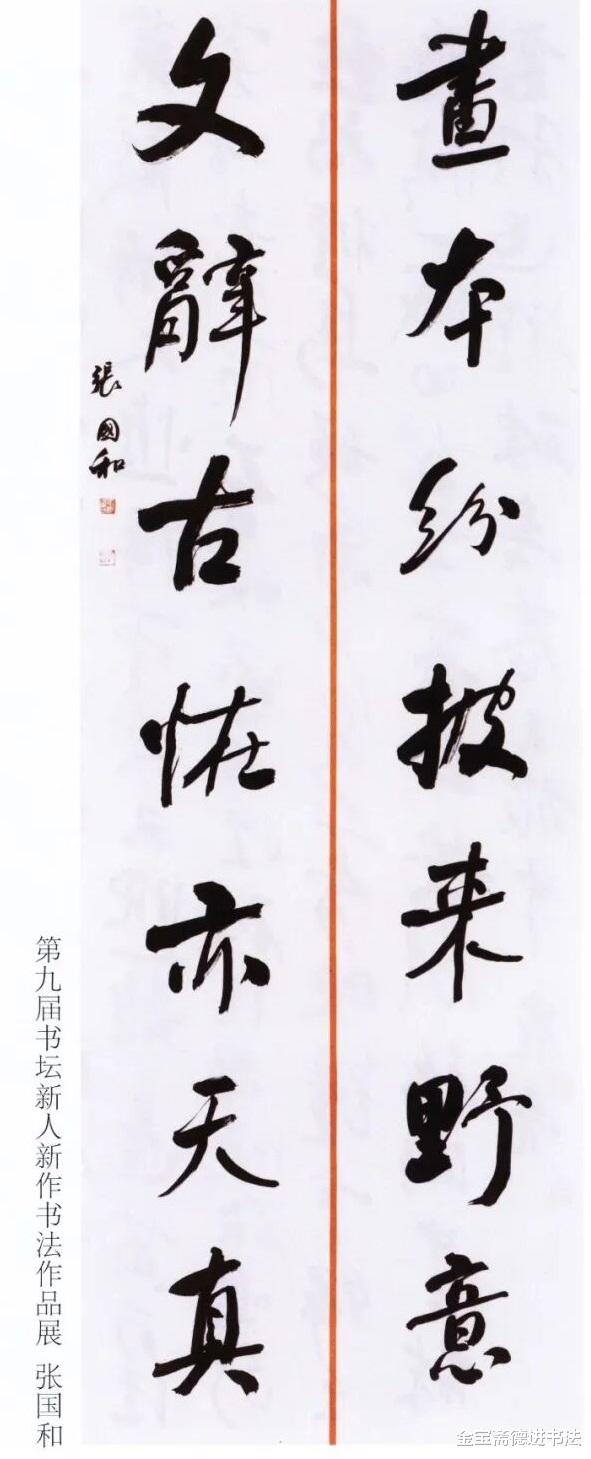 畫本紛披来野意
文辭古恠亦天真
張國和
第九届书坛新人新作书法作品展 张国和
金宝斋德进书法